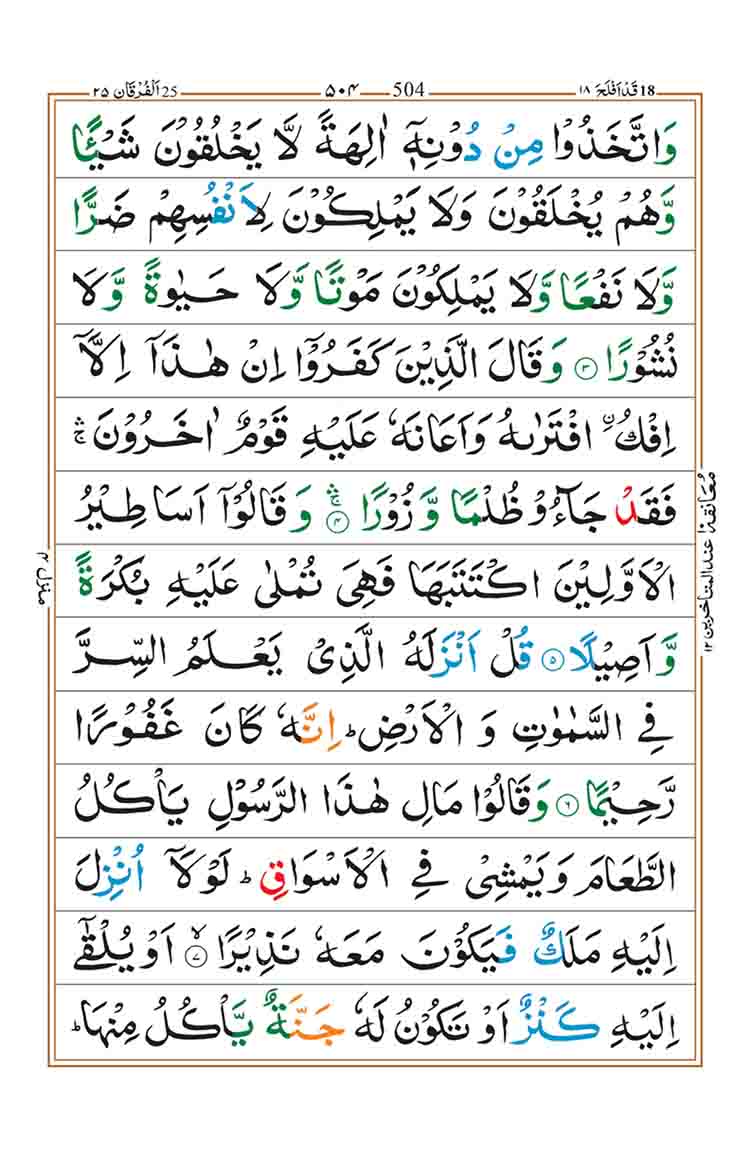 18 قَدْ اَفْلَحَ ١٨
504 ۵۰۴
25 اَلْفُرْقَان ٢٥
وَاتَّخَذُوْا مِنْ دُوْنِهٖۤ اٰلِهَةً لَّا يَخْلُقُوْنَ شَيْـًٔا
وَّهُمْ يُخْلَقُوْنَ وَلَا يَمْلِكُوْنَ لِاَنْفُسِهِمْ ضَرًّا
وَّلَا نَفْعًا وَّلَا يَمْلِكُوْنَ مَوْتًا وَّلَا حَيٰوةً وَّلَا
نُشُوْرًا ۝٣ وَقَالَ الَّذِيْنَ كَفَرُوْۤا اِنْ هٰذَاۤ اِلَّاۤ
اِفْكُ ۨ افْتَرٰىهُ وَاَعَانَهٗ عَلَيْهِ قَوْمٌ اٰخَرُوْنَ ۛۚ
فَقَدْ جَآءُوْ ظُلْمًا وَّ زُوْرًا ۝٤ ۛۚ وَقَالُوْۤا اَسَاطِيْرُ
الْاَوَّلِيْنَ اكْتَتَبَهَا فَهِىَ تُمْلٰى عَلَيْهِ بُكْرَةً
وَّاَصِيْلًا ۝٥ قُلْ اَنْزَلَهُ الَّذِىْ يَعْلَمُ السِّرَّ
فِى السَّمٰوٰتِ وَ الْاَرْضِ ؕ اِنَّهٗ كَانَ غَفُوْرًا
رَّحِيْمًا ۝٦ وَقَالُوْا مَالِ هٰذَا الرَّسُوْلِ يَاْكُلُ
الطَّعَامَ وَيَمْشِىْ فِى الْاَسْوَاقِ ؕ لَوْلَاۤ اُنْزِلَ
اِلَيْهِ مَلَكٌ فَيَكُوْنَ مَعَهٗ نَذِيْرًا ۝٧ ۙ اَوْ يُلْقٰۤى
اِلَيْهِ كَنْزٌ اَوْ تَكُوْنُ لَهٗ جَنَّةٌ يَّاْكُلُ مِنْهَا ؕ
معانقة عند المتاخرين ١٢
منزل ۴